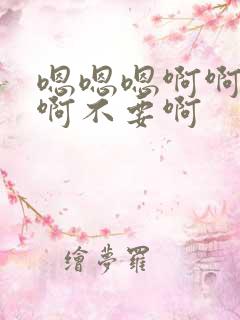 嗯嗯嗯啊啊
啊不要啊
繪夢羅